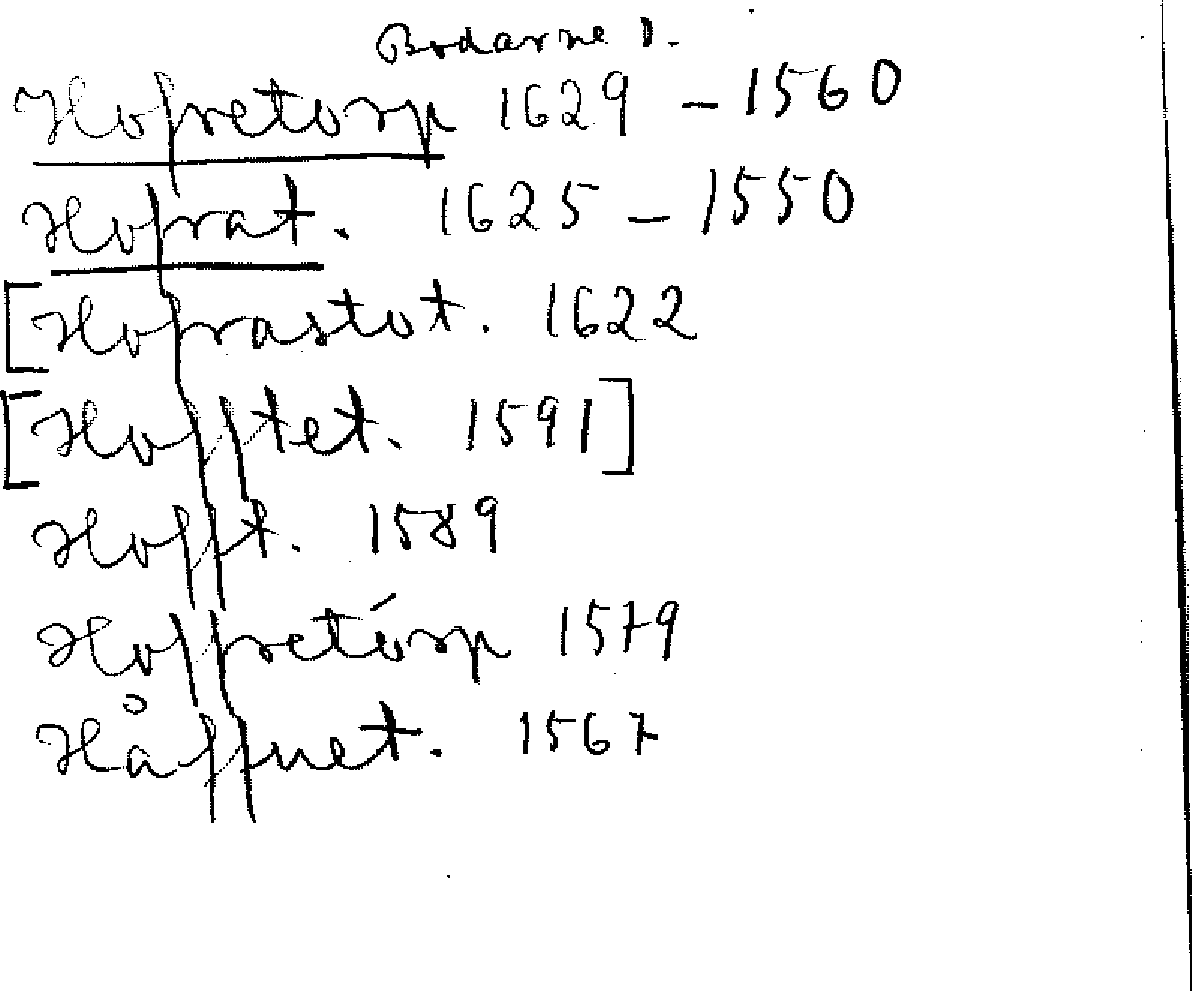 Bodarne 1.
Hofretorp 1629 – 1560
Hofrat. 1625 – 1550
[Hofrastot. 1622
[Hofftet. 1591]
Hofft. 1589
Hoffretórp 1579
Håffnet. 1567